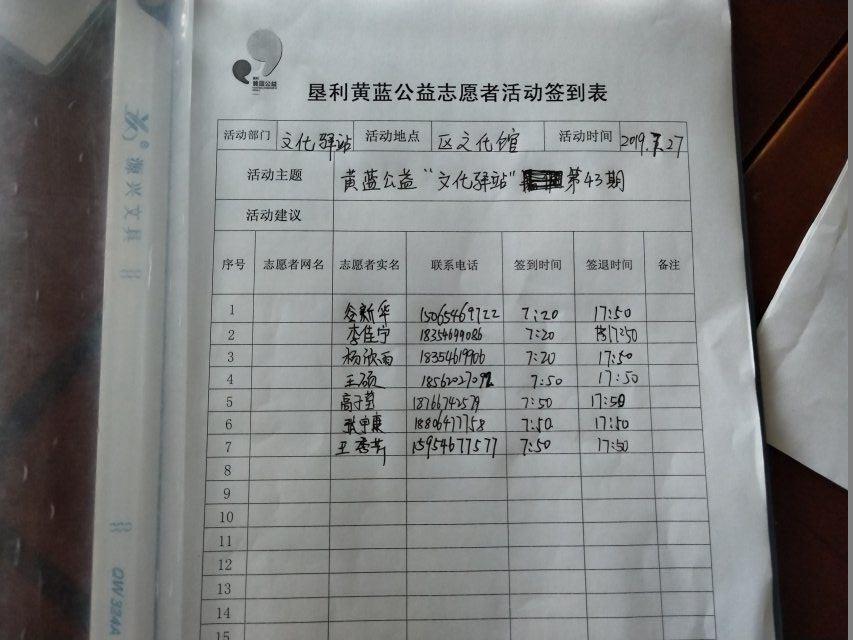 黄蓝公益
垦利黄蓝公益志愿者活动签到表
活动部门 文化驿站 活动地点 区文化馆 活动时间 2019.7.27
活动主题 黄蓝公益“文化驿站” 第43期
活动建议
序号 志愿者网名 志愿者实名 联系电话 签到时间 签退时间 备注
1 谷新华 15065469722 7:20 17:50
2 李佳宁 18354699086 7:20 17:50
3 杨欣雨 18354619906 7:20 17:50
4 王硕 18562027092 7:50 17:50
5 高子莹 18766742579 7:50 17:50
6 张宇康 18806477758 7:50 17:50
7 王秀芳 15954677577 7:50 17:50
8
9
10
11
12
13
14
15
振兴文具
QW324A